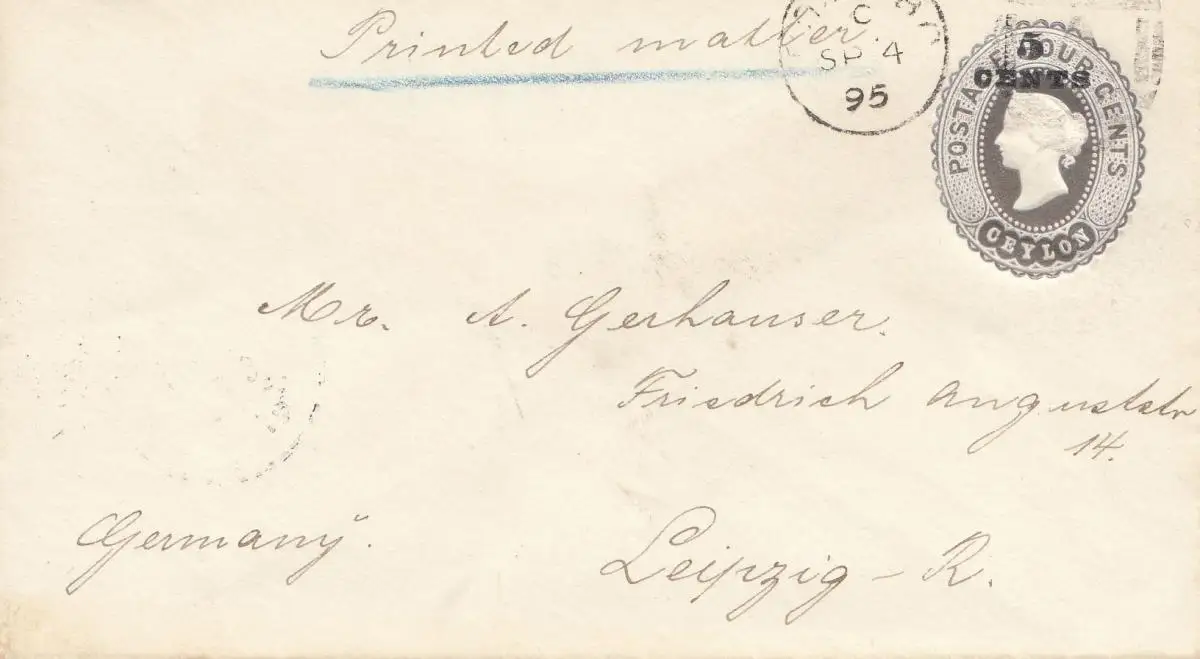 Printed matter.
C
SP 4
95
5
CENTS
POSTAGE FOUR CENTS
CEYLON
Mr. A. Gerhauser.
Friedrich Auguststr
14.
Germany.
Leipzig - R.